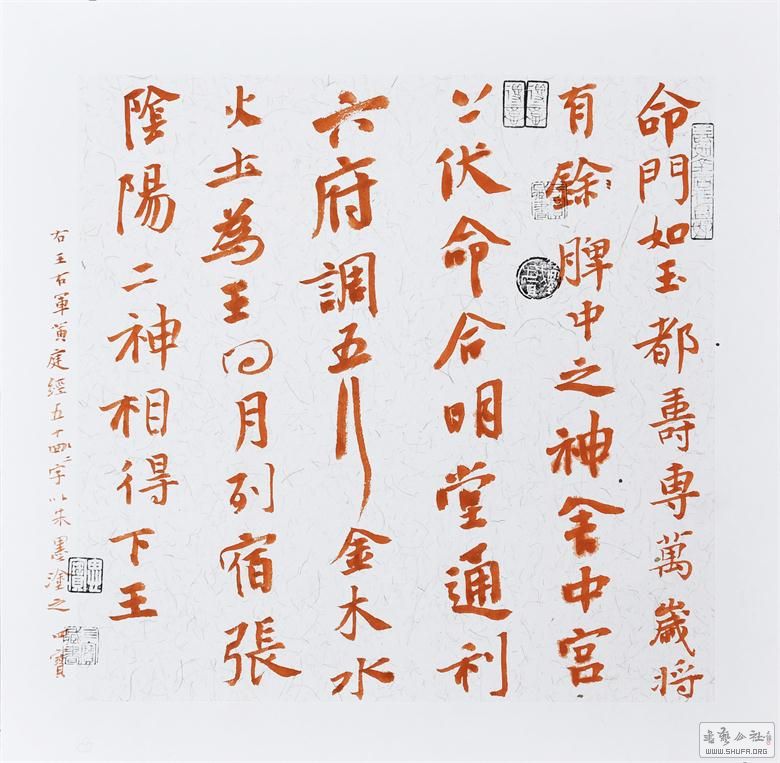 命門如玉都壽専萬歲将
有餘脾中之神舍中宮
上伏命合明堂通利
六府調五行金木水
火土為王日月列宿張
陰陽二神相得下王
右王右軍黄庭經五十字以朱墨塗之
書藝公社
WWW.SHUFA.ORG